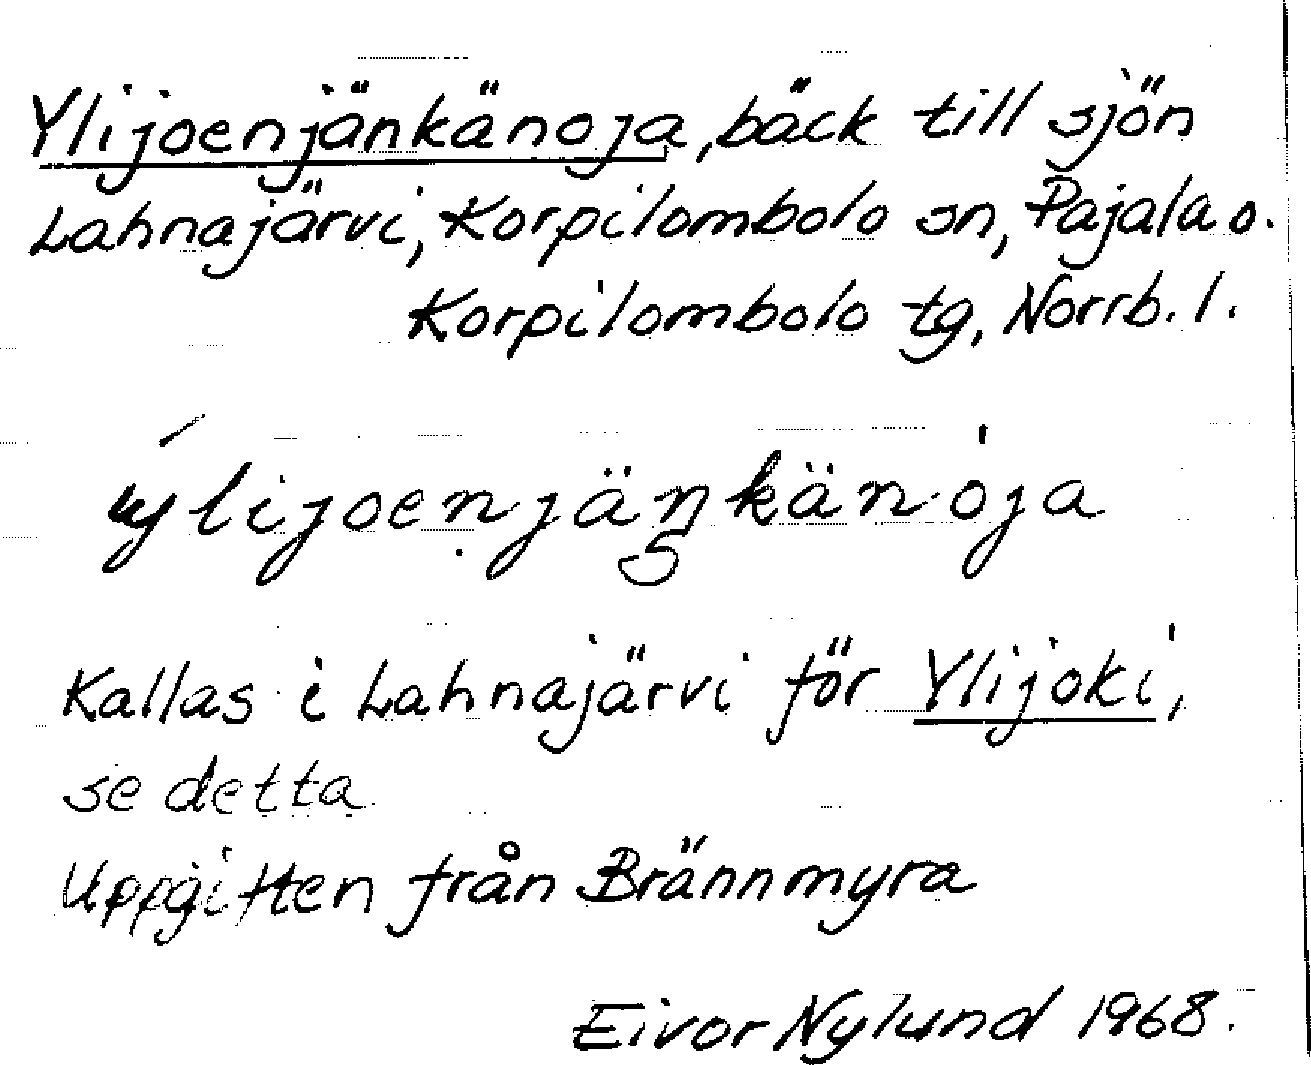 Ylijoenjänkänoja, bäck till sjön
Lahnajärvi, Korpilombolo sn, Pajala o.
Korpilombolo tg, Norrb. l.
ylijoenjäŋkänoja
Kallas i Lahnajärvi för Ylijoki,
se detta
Uppgiften från Brännmyra
Eivor Nylund 1968.